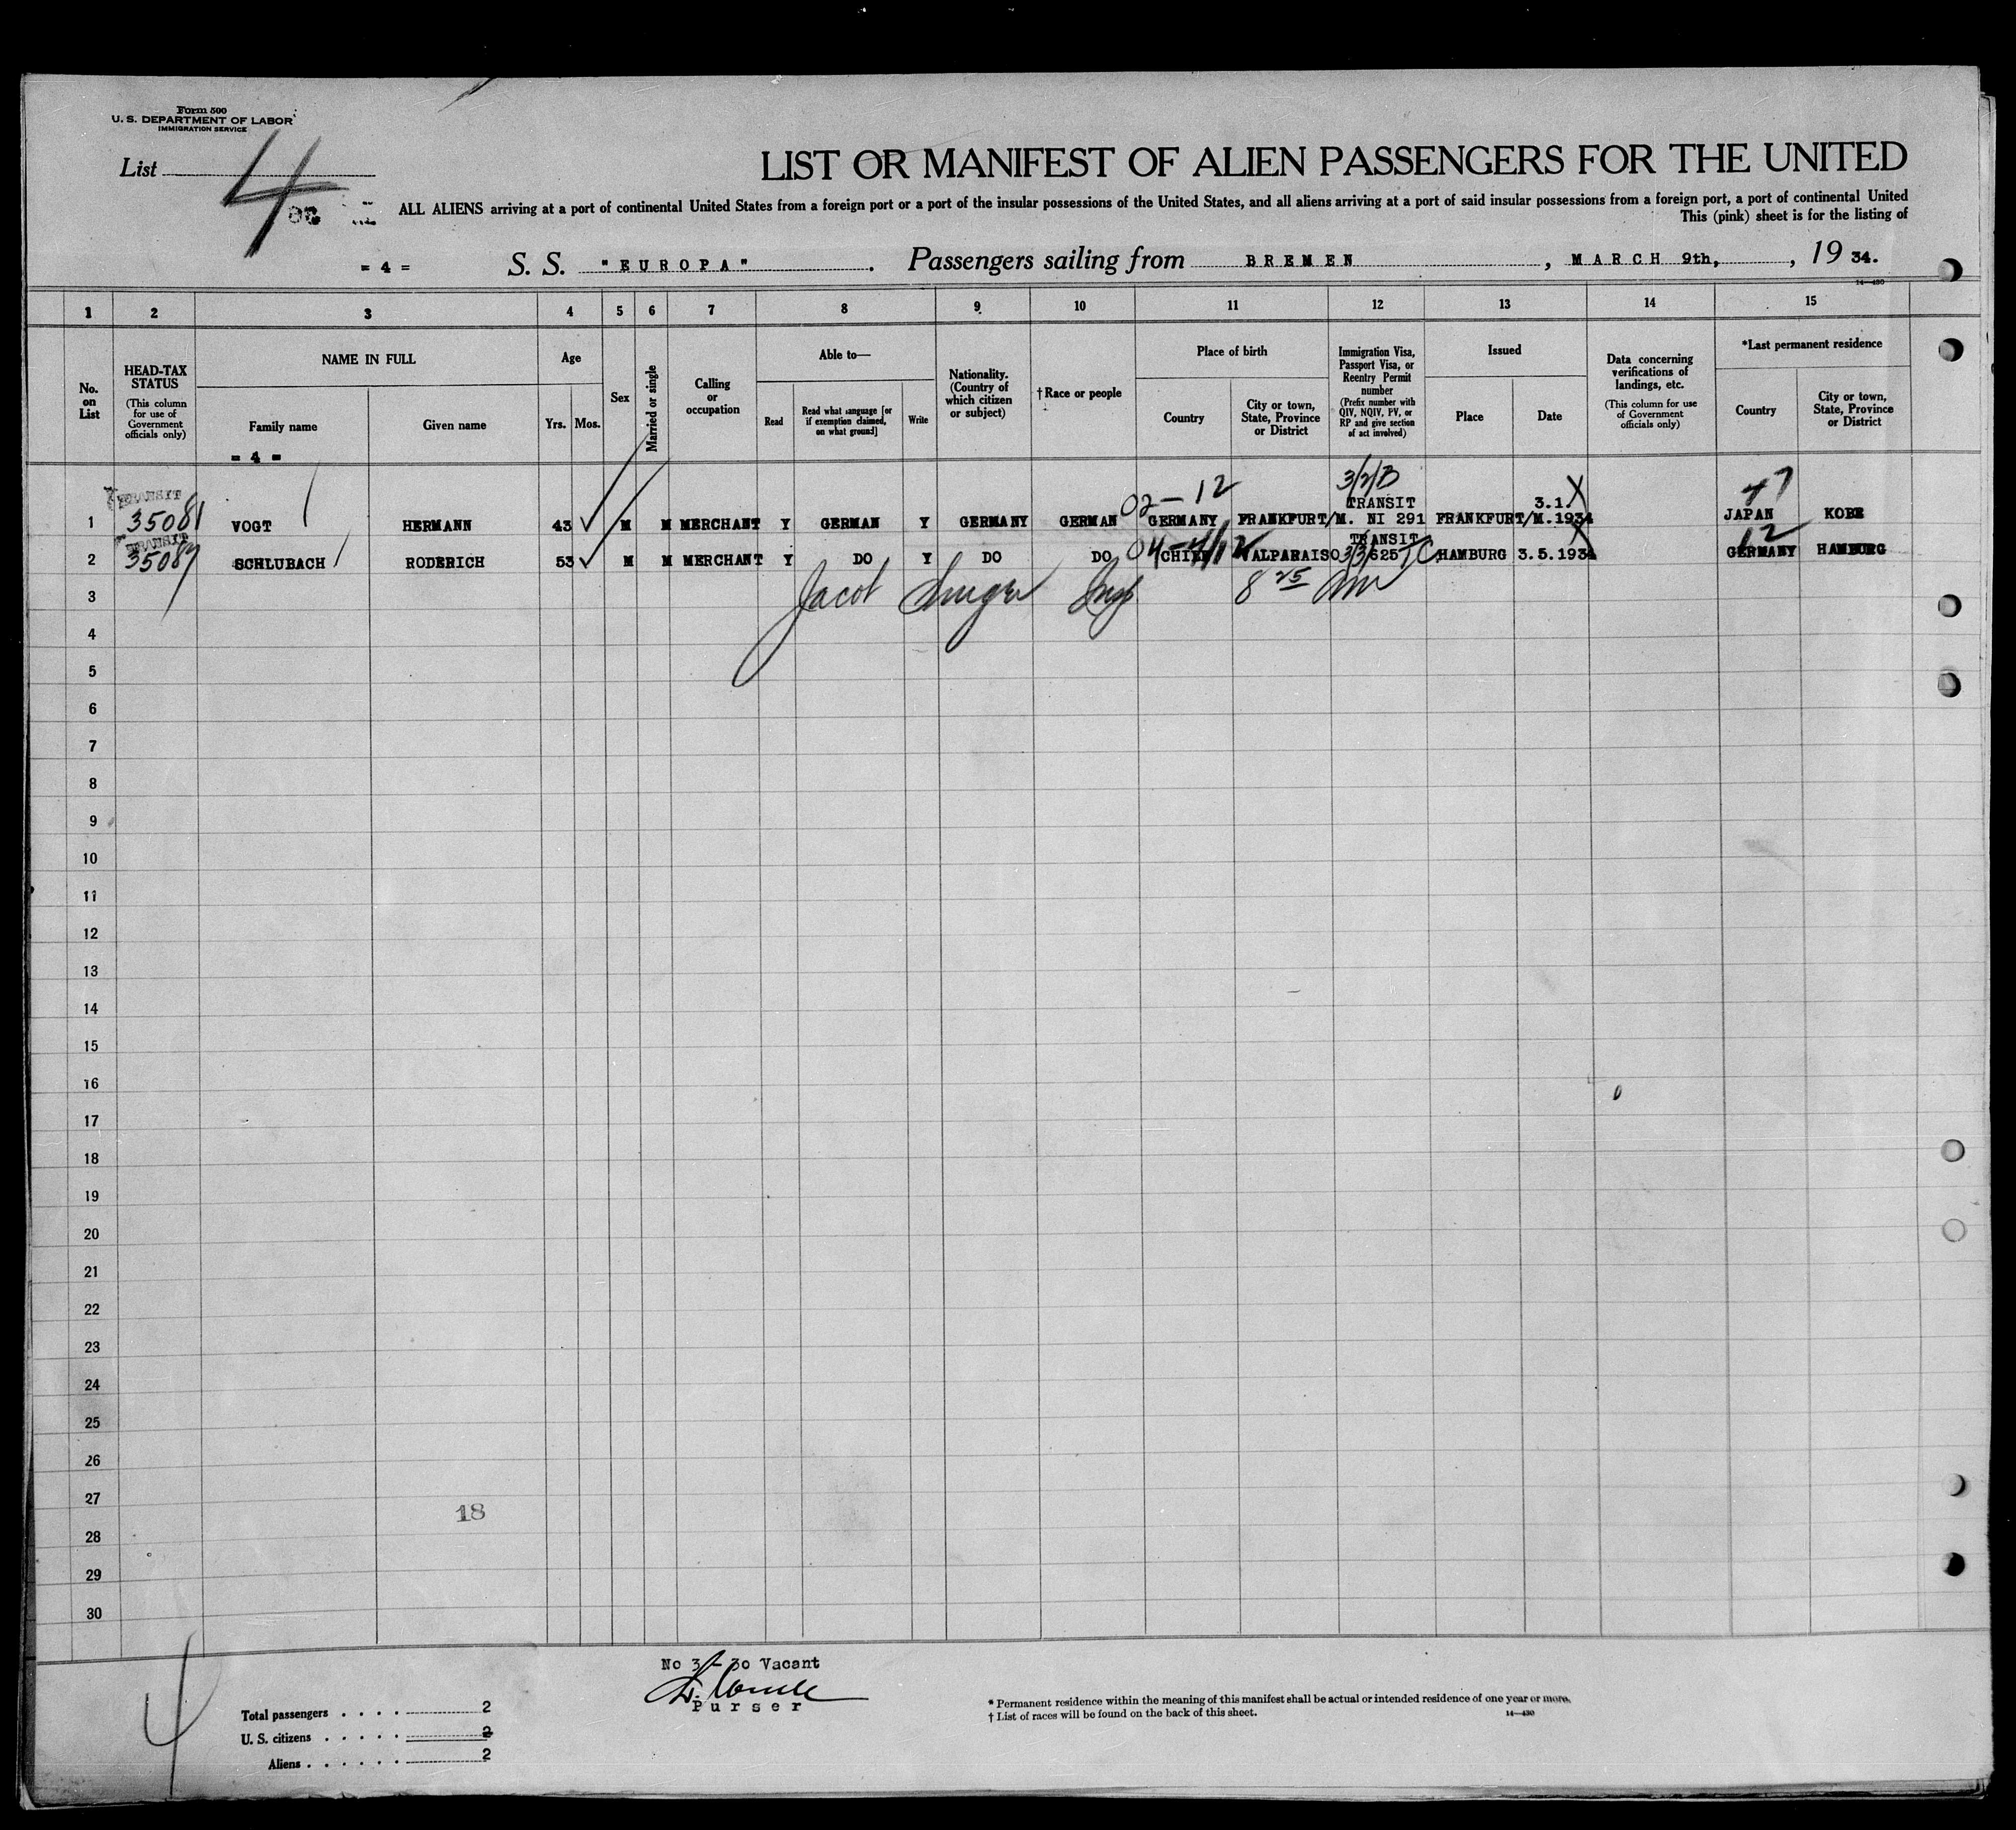 Form 500
U. S. DEPARTMENT OF LABOR
IMMIGRATION SERVICE
List 4
LIST OR MANIFEST OF ALIEN PASSENGERS FOR THE UNITED
ALL ALIENS arriving at a port of continental United States from a foreign port or a port of the insular possessions of the United States, and all aliens arriving at a port of said insular possessions from a foreign port, a port of continental United
This (pink) sheet is for the listing of
= 4 = S. S. "EUROPA". Passengers sailing from BREMEN, MARCH 9th, , 19 34.
14—430
1 2 3 4 5 6 7 8 9 10 11 12 13 14 15
No. on List
HEAD-TAX STATUS
(This column for use of Government officials only)
NAME IN FULL
Family name
Given name
Age
Yrs. Mos.
Sex
Married or single
Calling or occupation
Able to—
Read
Read what language [or if exemption claimed, on what ground]
Write
Nationality. (Country of which citizen or subject)
† Race or people
Place of birth
Country
City or town, State, Province or District
Immigration Visa, Passport Visa, or Reentry Permit number
(Prefix number with QIV, NQIV, PV, or RP and give section of act involved)
Issued
Place
Date
Data concerning verifications of landings, etc.
(This column for use of Government officials only)
*Last permanent residence
Country
City or town, State, Province or District
= 4 =
TRANSIT 02-12 3/2/B TRANSIT 3.1.
1 35081 VOGT HERMANN 43 M M MERCHANT Y GERMAN Y GERMANY GERMAN GERMANY FRANKFURT/M. NI 291 FRANKFURT/M.1934 JAPAN KOBE
TRANSIT TRANSIT 12
2 35087 SCHLUBACH RODERICH 53 M M MERCHANT Y DO Y DO DO CHILE VALPARAISO 625 HAMBURG 3.5.1934 GERMANY HAMBURG
3 Jacob 8 25 am
4
5
6
7
8
9
10
11
12
13
14
15
16
17
18
19
20
21
22
23
24
25
26
27
18
28
29
30
4
No 3-30 Vacant
Purser
Total passengers . . . . 2
U. S. citizens . . . . . 2
Aliens . . . . . . 2
* Permanent residence within the meaning of this manifest shall be actual or intended residence of one year or more.
† List of races will be found on the back of this sheet.
14—430